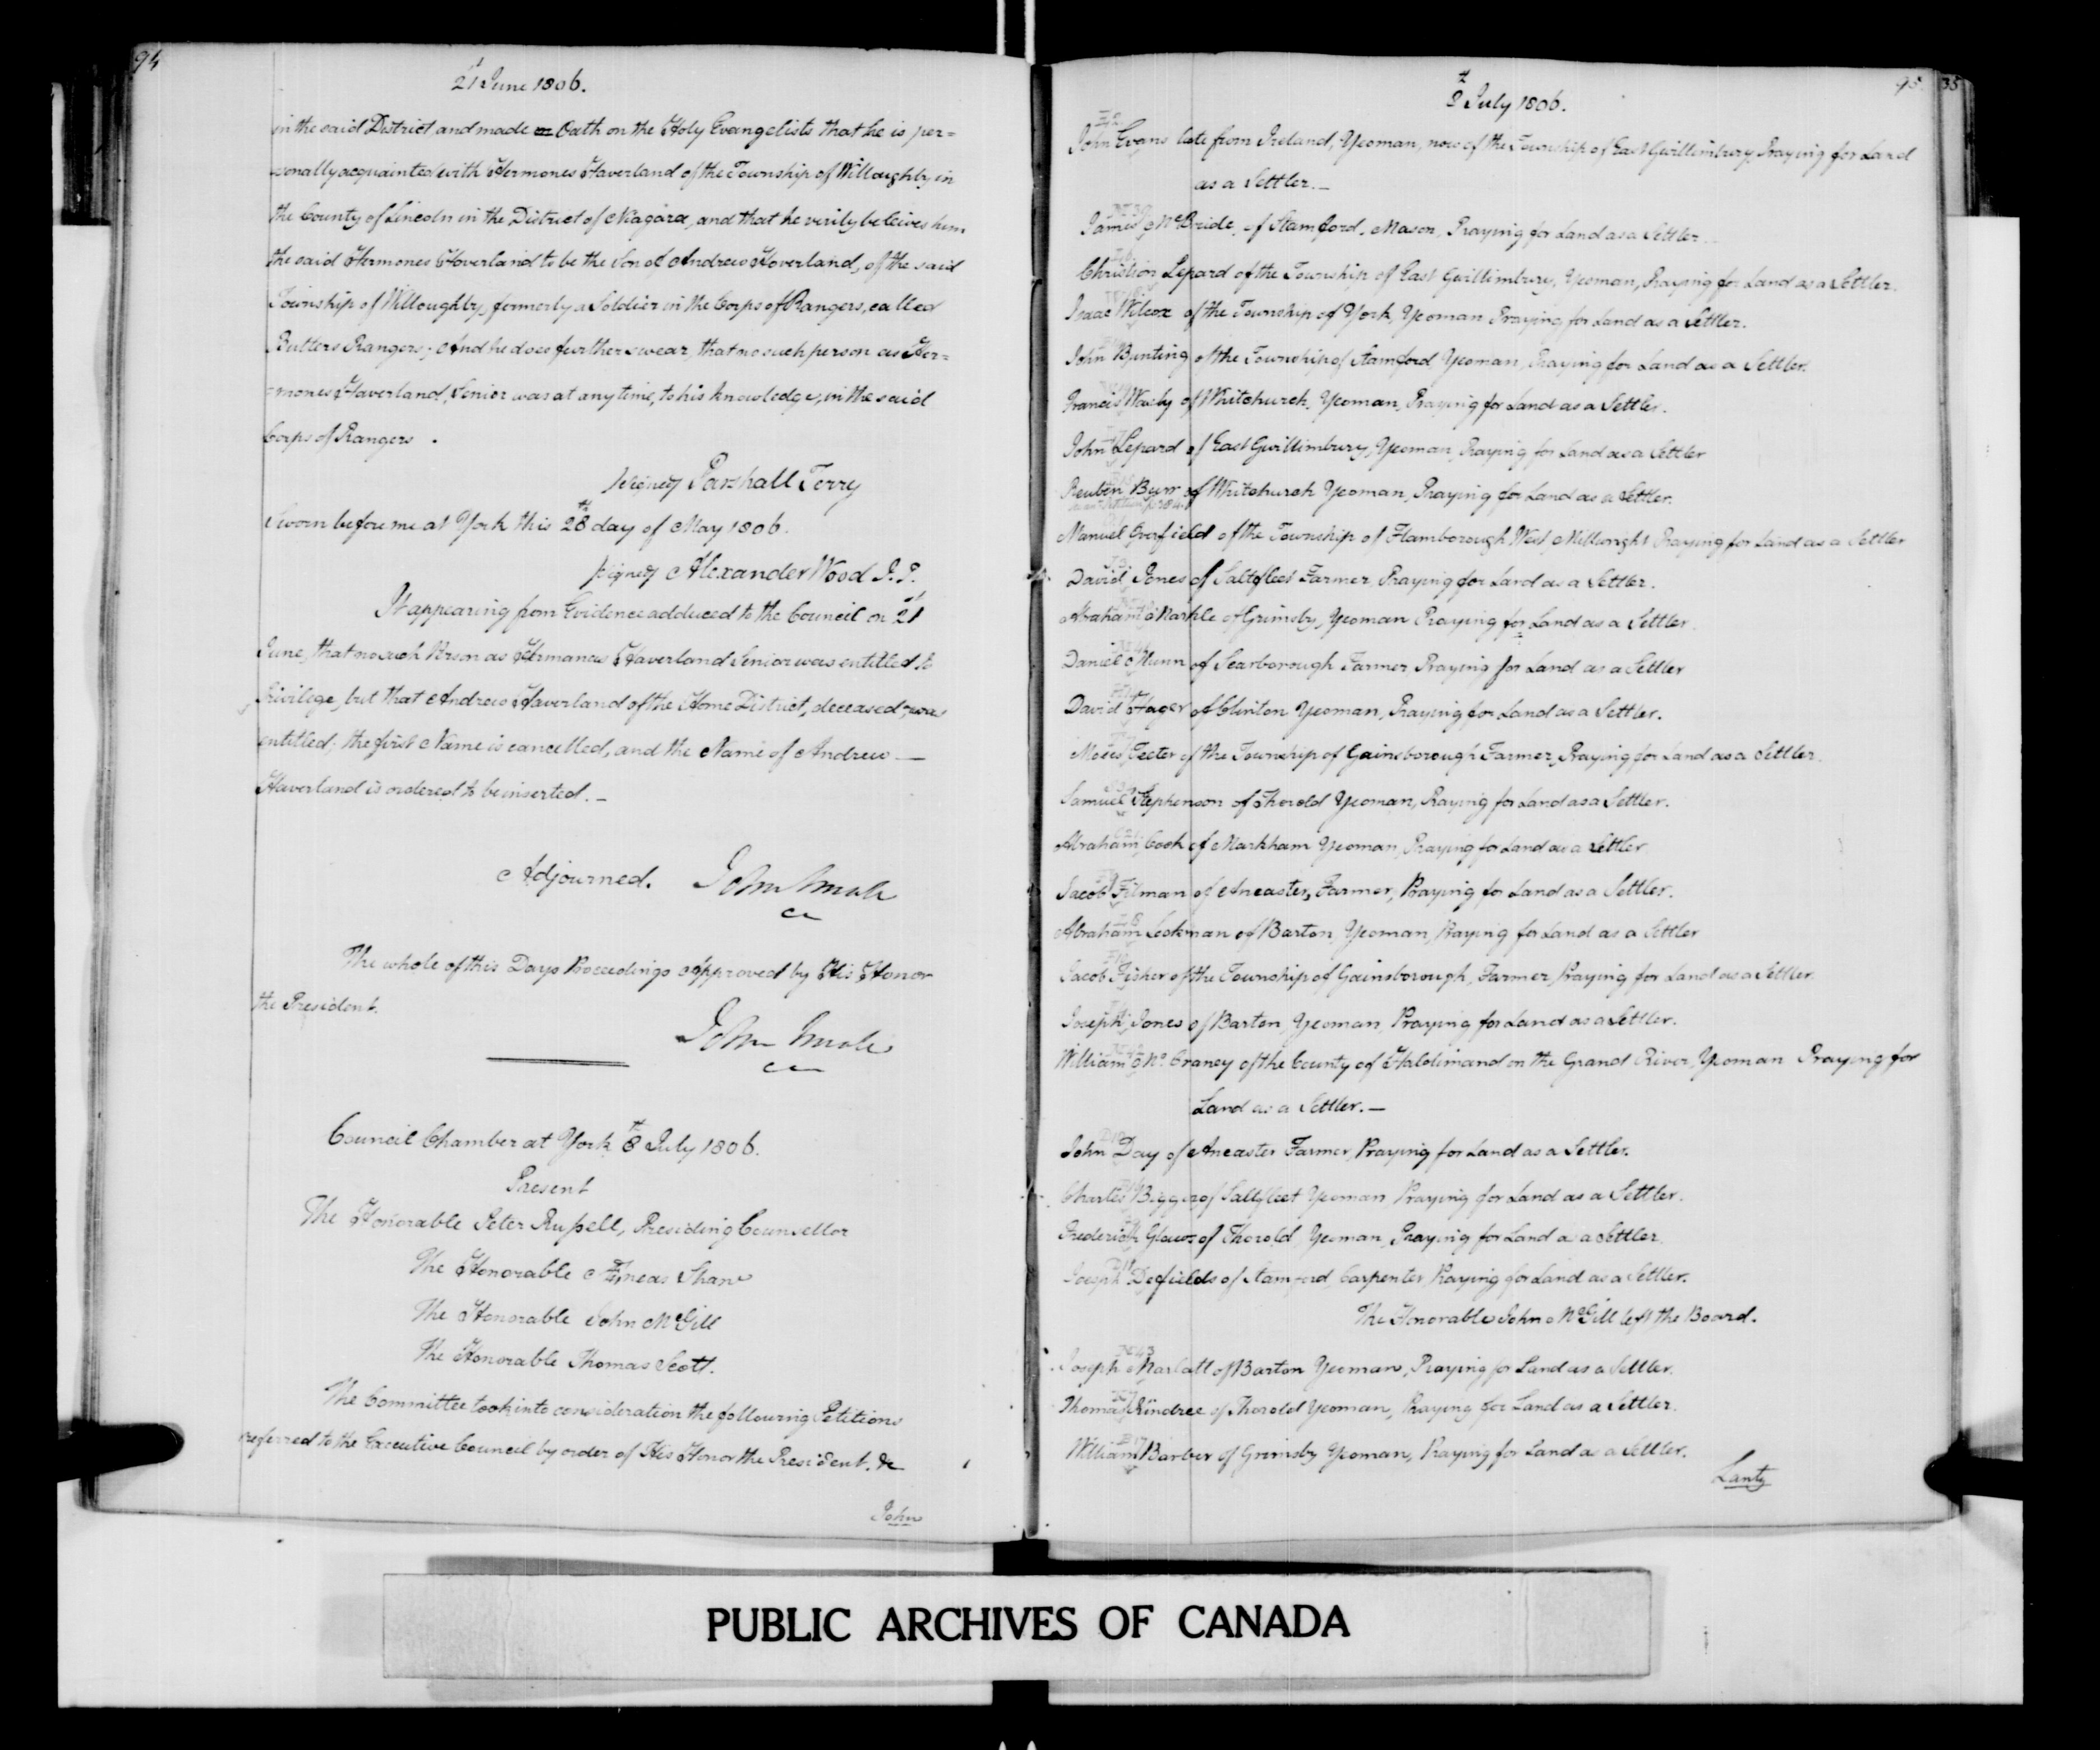 94
21st June 1806.
in the said District and made Oath on the Holy Evangelists that he is per=
=sonally acquainted with Hermones Haverland of the Township of Willoughby in
the County of Lincoln in the District of Niagara, and that he verily beleives him
the said Hermones Haverland to be the Son of Andrew Haverland, of the said
Township of Willoughby, formerly a Soldier in the Corps of Rangers, called
Butlers Rangers; And he does further swear, that no such person as Her=
=mones Haverland, Senior was at any time, to his knowledge, in the said
Corps of Rangers.
signed Parshall Terry
Sworn before me at York this 28th day of May 1806.
signed Alexander Wood J.P.
It appearing from Evidence adduced to the Council on 21st
June, that no such Person as Hermanes Haverland Senior was entitled to
Privilege, but that Andrew Haverland of the Home District, deceased, was
entitled; the first Name is cancelled, and the Name of Andrew —
Haverland is ordered to be inserted. —
Adjourned. John Small
CC
The whole of this Days Proceedings Approved by His Honor
the President.
John Small
CC
Council Chamber at York 8th July 1806.
Present
The Honorable Peter Russell, Presiding Counsellor
The Honorable Æneas Shaw
The Honorable John McGill
The Honorable Thomas Scott.
The Committee took into consideration the following Petitions
referred to the Executive Council by order of His Honor the President. &c
John
95 35
8th July 1806.
John Evans late from Ireland, Yeoman, now of the Township of East Gwillimbury Praying for Land
as a Settler. —
James McBride, of Stamford, Mason, Praying for Land as a Settler.
Christian Lepard of the Township of East Gwillimbury, Yeoman, Praying for Land as a Settler.
Isaac Wilcox of the Township of York, Yeoman Praying for Land as a Settler.
John Bunting of the Township of Stamford Yeoman, Praying for Land as a Settler.
Francis of Whitchurch, Yeoman, Praying for Land as a Settler.
John Lepard of East Gwillimbury, Yeoman, Praying for Land as a Settler
Reuben Burr of Whitchurch Yeoman, Praying for Land as a Settler.
Manuel of the Township of Flamborough West Millwright Praying for Land as a Settler
David Jones of Saltfleet Farmer Praying for Land as a Settler.
Abraham Markle of Grimsby, Yeoman Praying for Land as a Settler.
Daniel Munn of Scarborough Farmer, Praying for Land as a Settler
David Hager of Clinton Yeoman, Praying for Land as a Settler.
Moses Teeter of the Township of Gainsborough Farmer, Praying for Land as a Settler.
Samuel Stephenson of Thorold Yeoman, Praying for Land as a Settler.
Abraham Cook of Markham Yeoman, Praying for Land as a Settler
Jacob Filman of Ancaster, Farmer, Praying for Land as a Settler.
Abraham Lockman of Barton, Yeoman, Praying for Land as a Settler
Jacob Fisher of the Township of Gainsborough, Farmer, Praying for Land as a Settler.
Joseph Jones of Barton, Yeoman, Praying for Land as a Settler.
William McCraney of the County of Haldimand on the Grand River, Yeoman Praying for
Land as a Settler. —
John Day of Ancaster Farmer, Praying for Land as a Settler.
Charles Bigger of Saltfleet Yeoman Praying for Land as a Settler.
Frederick of Thorold, Yeoman, Praying for Land as a Settler.
Joseph Defields of Stamford, Carpenter, Praying for Land as a Settler.
The Honorable John McGill left the Board.
M43
Joseph Marlatt of Barton Yeoman, Praying for Land as a Settler.
Thomas of Thorold Yeoman, Praying for Land as a Settler.
B17
William Barber of Grimsby Yeoman, Praying for Land as a Settler.
Lanty
PUBLIC ARCHIVES OF CANADA